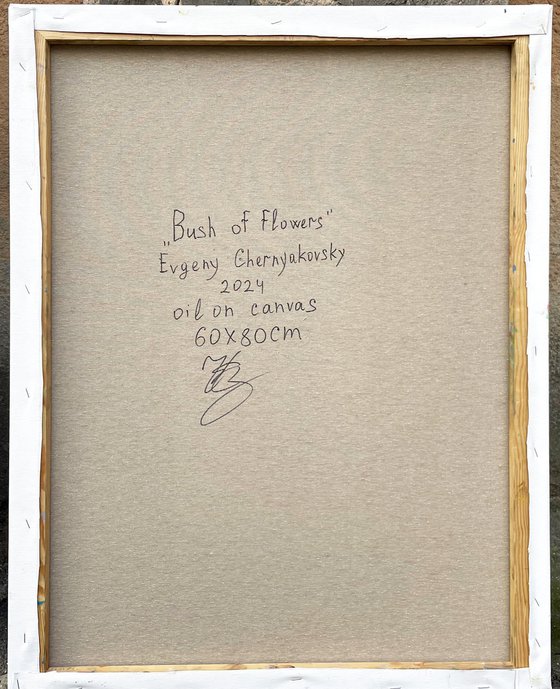 „Bush of Flowers"
Evgeny Chernyakovsky
2024
oil on canvas
60x80cm